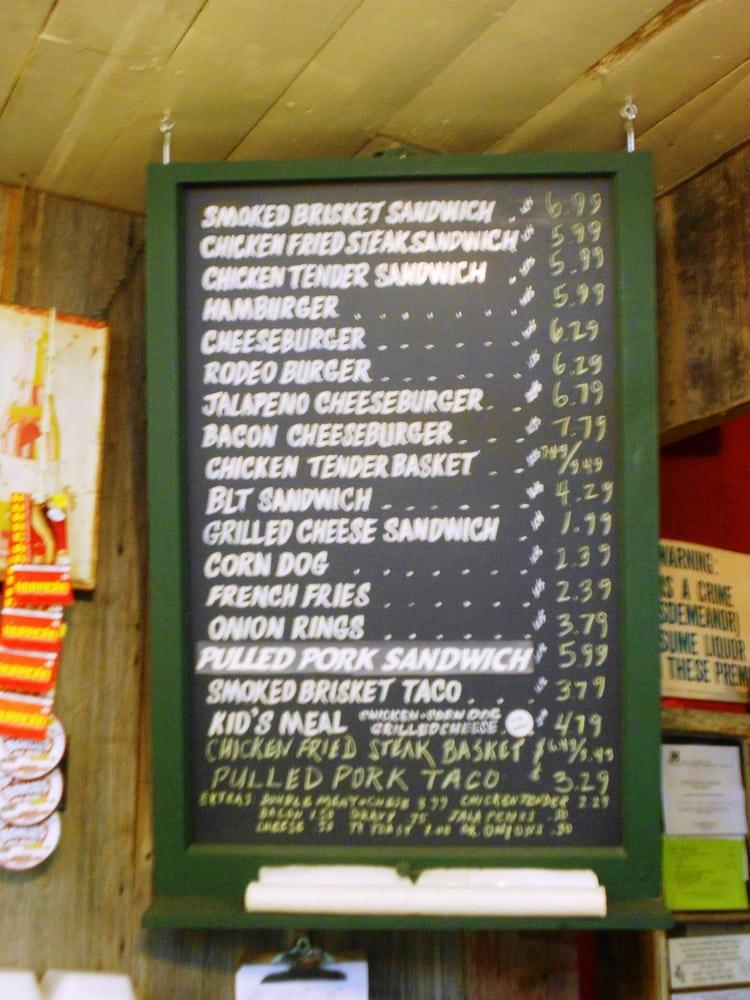 SMOKED BRISKET SANDWICH . 6.99
CHICKEN FRIED STEAK SANDWICH 5.99
CHICKEN TENDER SANDWICH . 5.99
HAMBURGER . . . . . . 5.99
CHEESEBURGER . . . . . 6.29
RODEO BURGER . . . . . 6.29
JALAPENO CHEESEBURGER . . 6.79
BACON CHEESEBURGER . . . 7.79
CHICKEN TENDER BASKET . .
BLT SANDWICH . . . . . 4.29
GRILLED CHEESE SANDWICH . 1.99
CORN DOG . . . . . . 2.39
FRENCH FRIES . . . . . 2.39
ONION RINGS . . . . . 3.79
PULLED PORK SANDWICH 5.99
SMOKED BRISKET TACO . . . 3.79
KID'S MEAL CHICKEN · CORN DOG 4.79
GRILLED CHEESE
CHICKEN FRIED STEAK BASKET $
PULLED PORK TACO $ 3.29
EXTRAS DOUBLE MEAT + CHEESE CHICKEN TENDER 2.29
BACON GRAVY .75 JALAPENOS .50
CHEESE .50 TX TOAST 1.00 OR. ONIONS .50
WARNING:
S A CRIME
SDEMEANOR)
SUME LIQUOR
THESE PREM